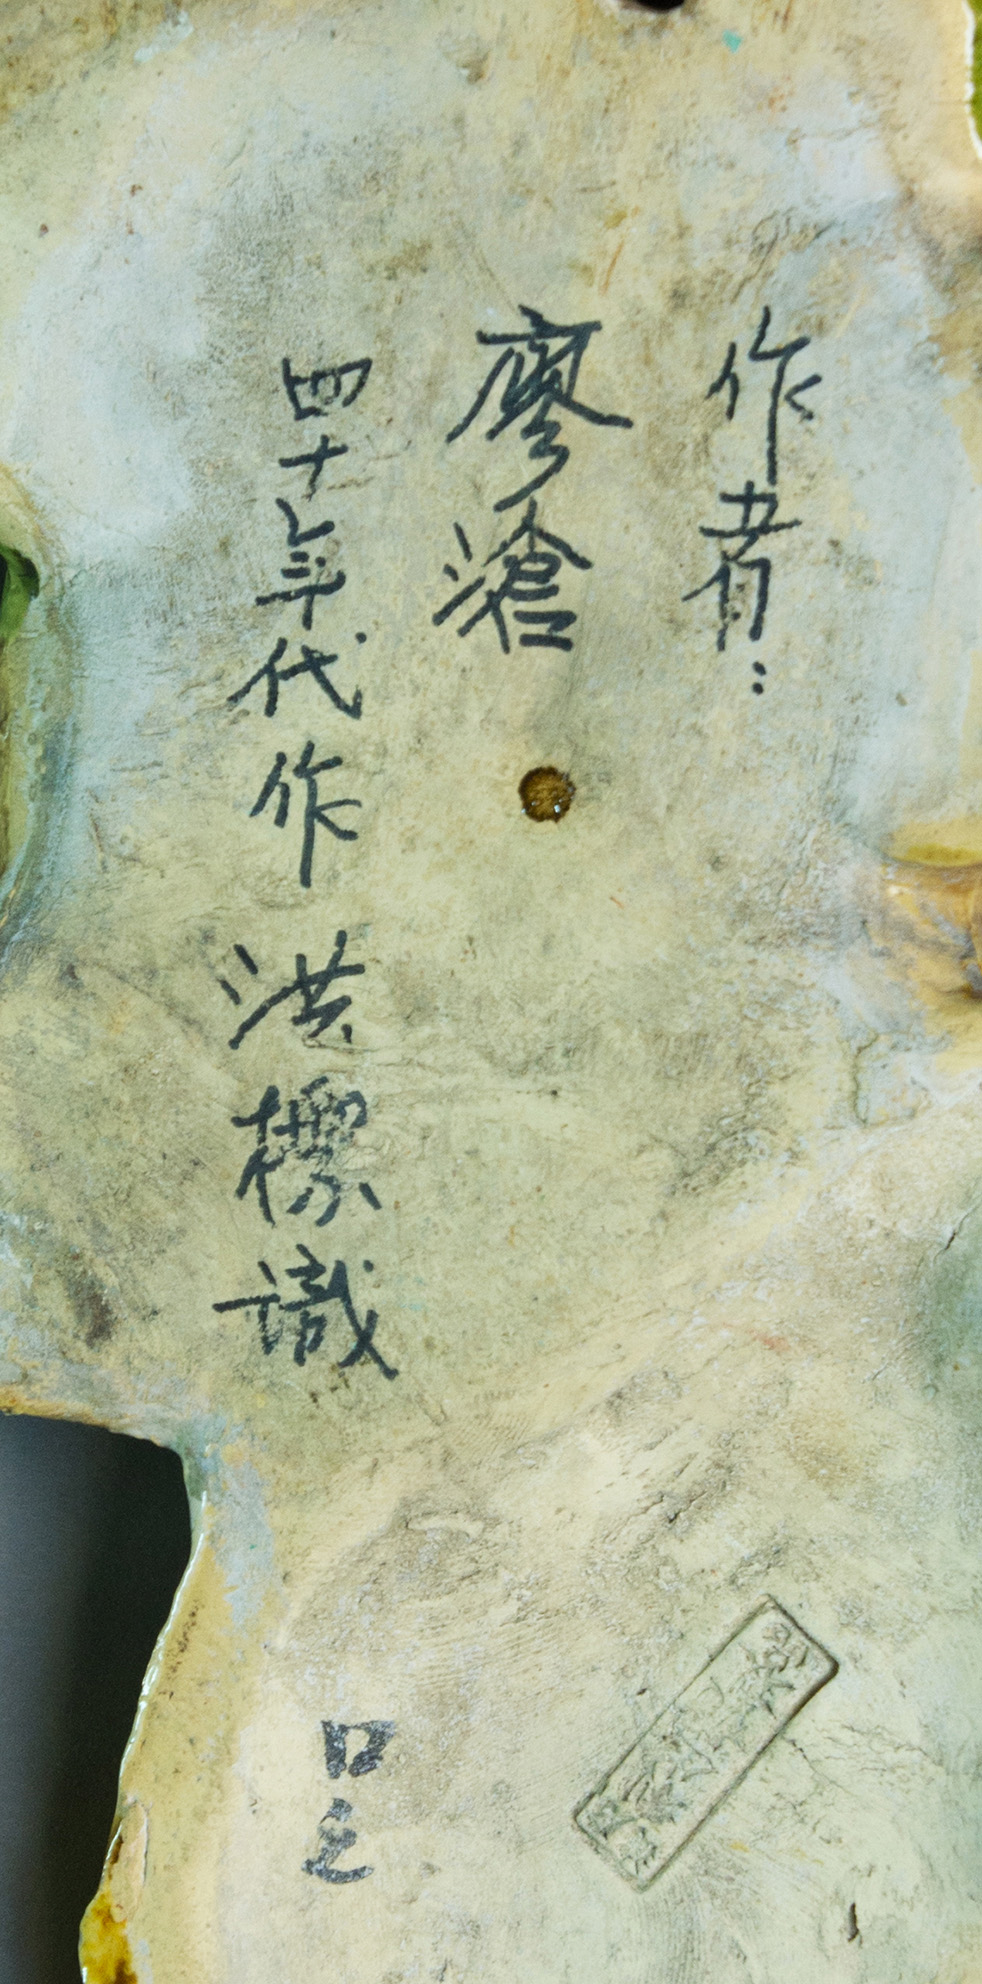 作者：
廖滄
四十年代作 洪標識
口之